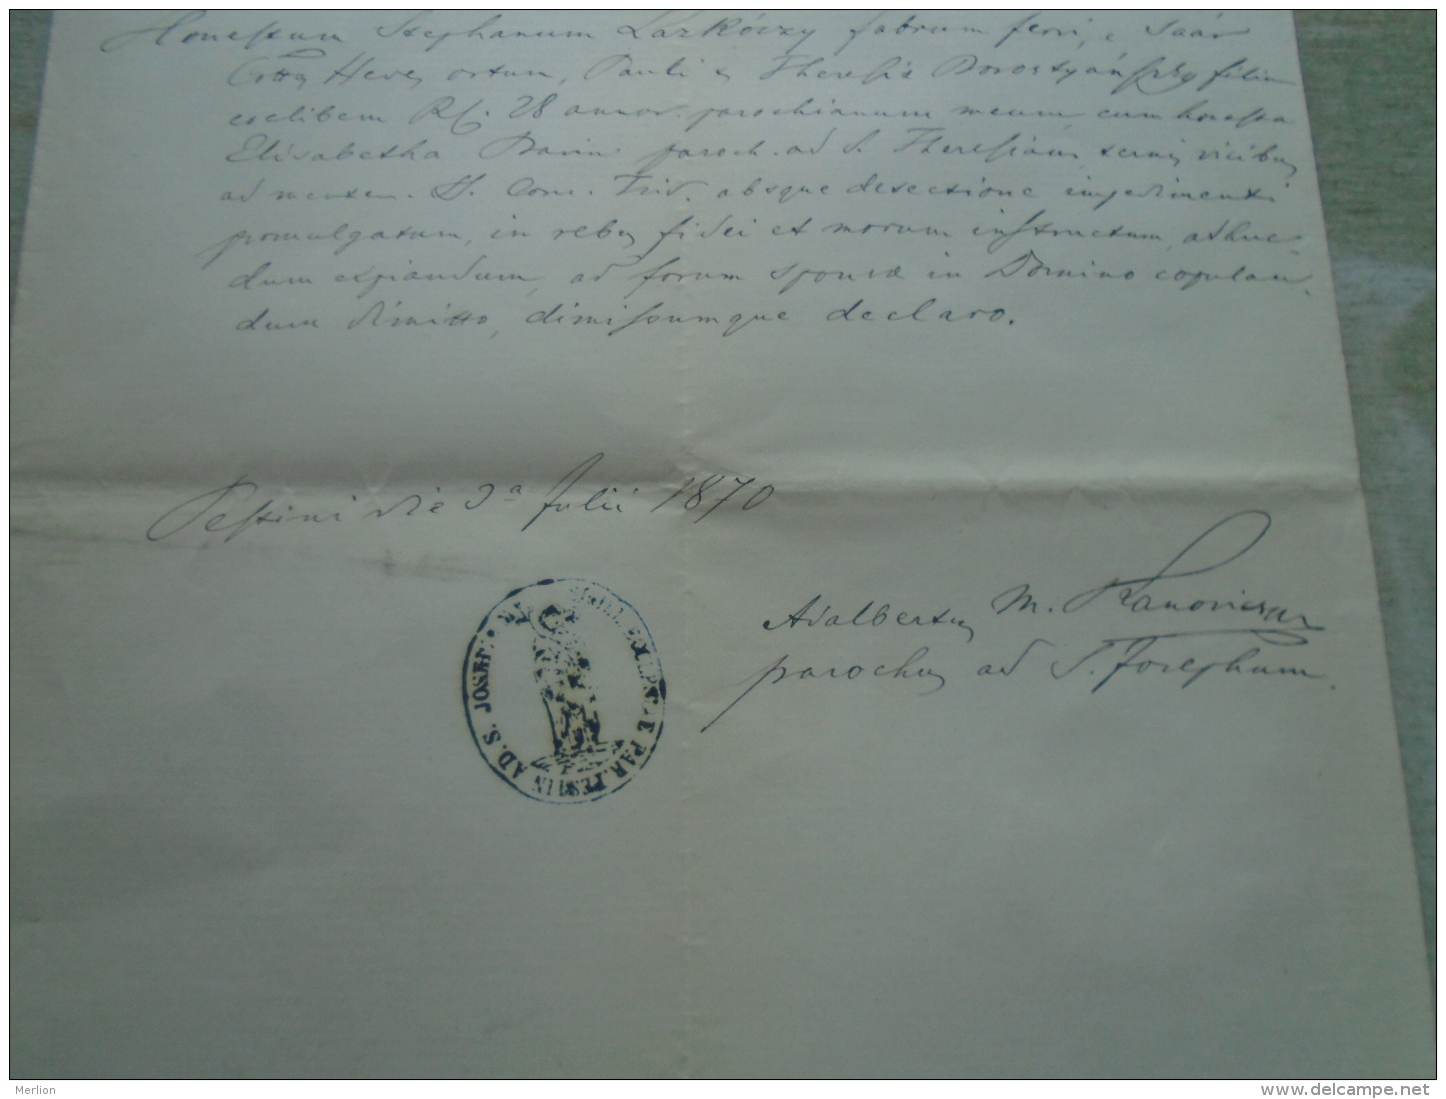 Honestum Stephanum Lazkóczy fabrum ferri, e Saár
Cottu Heves ortum, Pauli & Theresiæ Borostyán filium
coelibem RC. 28 annor. parochianum meum, cum honesta
Elisabetha Bavin paroch. ad S. Theresiam, ternis vicibus
ad mentem S. Conc. Trid. absque detectione impedimenti
promulgatum, in rebus fidei et morum instructum, adhuc
dum expiandum, ad forum sponsæ in Domino copulan-
dum dimitto, dimissumque declaro.
Pestini die 3ª Julii 1870
SIGILL. ECCLESIAE PAR. PESTIN AD. S. JOSEPH.
Adalbertus M.
parochus ad S. Josephum.
Merlion
www.delcampe.net